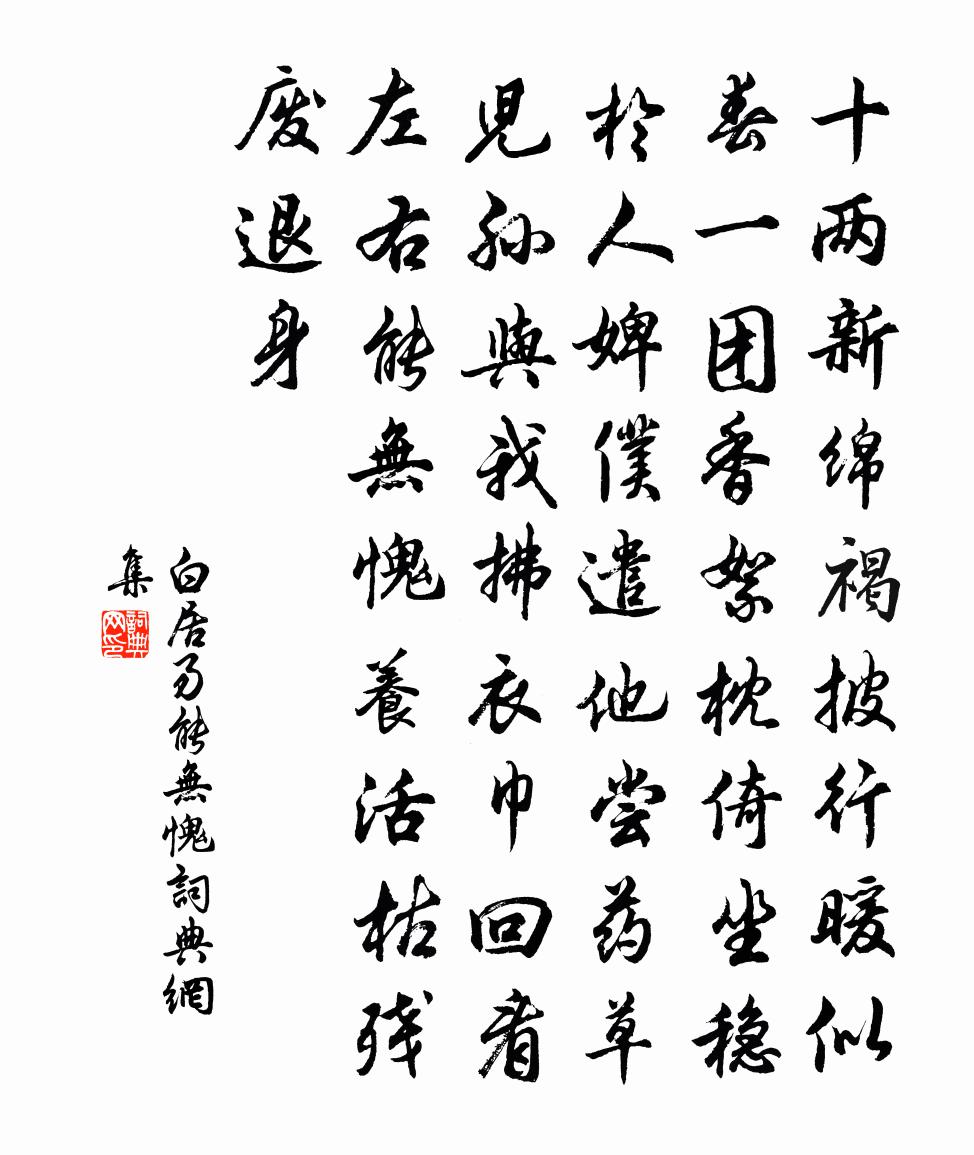 十两新绵褐披行暖似
春一团香絮枕倚坐稳
於人婢僕遣他尝药草
児孙與我拂衣巾回看
左右能無愧養活枯残
废退身
白居易能無愧詞典網
集
詞典
网印